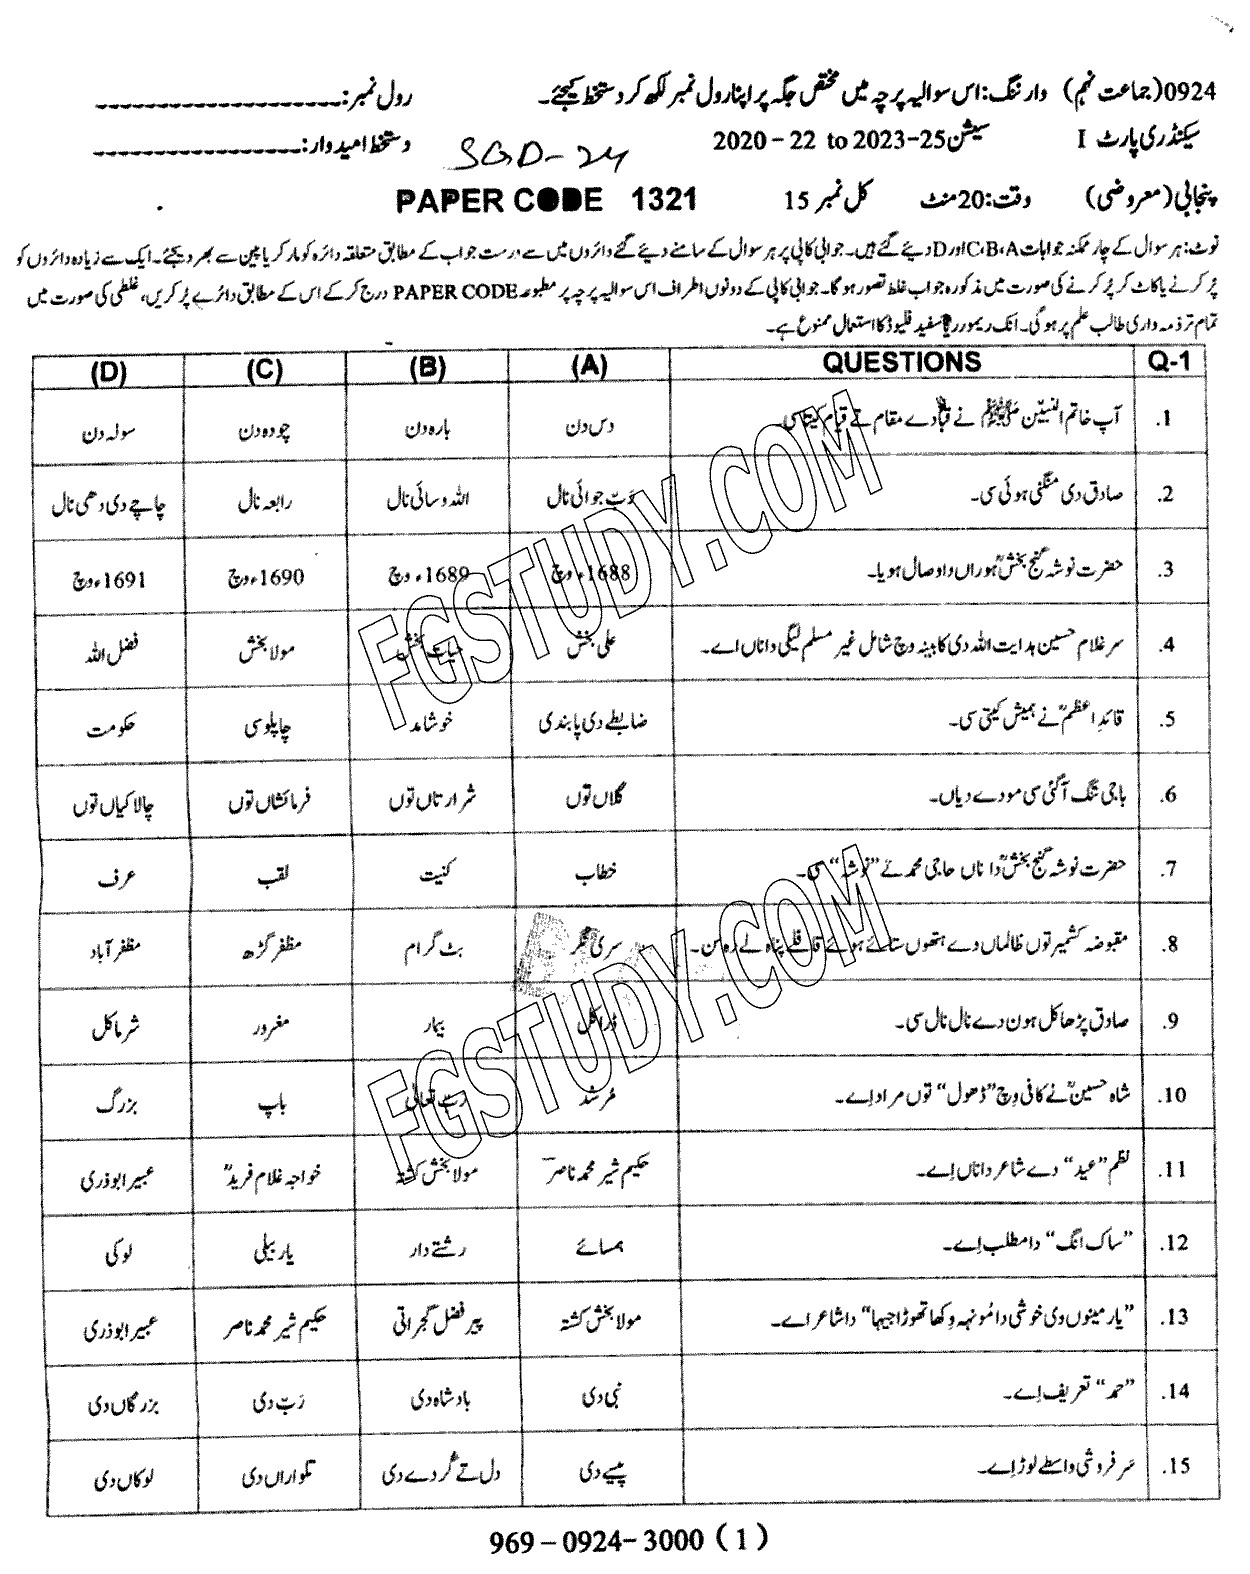 0924(جماعت نہم) وارننگ: اس سوالیہ پرچہ میں مختص جگہ پر اپنا رول نمبر لکھ کر دستخط کیجئے۔ رول نمبر:
سیکنڈری پارٹ I سیشن 2020 - 22 to 2023-25 SGD-24 دستخط امیدوار:
پنجابی (معروضی) وقت: 20 منٹ کل نمبر 15 PAPER CODE 1321
نوٹ: ہر سوال کے چار ممکنہ جوابات A،B،C اور D دیئے گئے ہیں۔ جوابی کاپی پر ہر سوال کے سامنے دیئے گئے دائروں میں سے درست جواب کے مطابق متعلقہ دائرہ کو مارکر یا پین سے بھر دیجئے۔ ایک سے زیادہ دائروں کو
پُر کرنے یا کاٹ کر پُر کرنے کی صورت میں مذکورہ جواب غلط تصور ہوگا۔ جوابی کاپی کے دونوں اطراف اس سوالیہ پرچہ پر مطبوعہ PAPER CODE درج کر کے اس کے مطابق دائرے پُر کریں، غلطی کی صورت میں
تمام تر ذمہ داری طالب علم پر ہوگی۔ انک ریموور یا سفید فلیوڈ کا استعمال ممنوع ہے۔
Q-1 QUESTIONS (A) (B) (C) (D)
1. آپ خاتم النبیین ﷺ نے قبا دے مقام تے قیام کیتا سی۔ دس دن بارہ دن چودہ دن سولہ دن
2. صادق دی منگنی ہوئی سی۔ رَبّ جوائی نال اللہ وسائی نال رابعہ نال چاچے دی دھی نال
3. حضرت نوشہ گنج بخشؒ ہوراں دا وصال ہویا۔ 1688ء وچ 1689ء وچ 1690ء وچ 1691ء وچ
4. سر غلام حسین ہدایت اللہ دی کابینہ وچ شامل غیر مسلم لیگی دا ناں اے۔ علی بخش حیات بخش مولا بخش فضل اللہ
5. قائدِ اعظمؒ نے ہمیش کیتی سی۔ ضابطے دی پابندی خوشامد چاپلوسی حکومت
6. باجی تنگ آ گئی سی مودے دیاں۔ گلاں توں شرارتاں توں فرمائشاں توں چالاکیاں توں
7. حضرت نوشہ گنج بخشؒ دا ناں حاجی محمد تے ”نوشہ“ سی۔ خطاب کنیت لقب عرف
8. مقبوضہ کشمیر توں ظالماں دے ہتھوں ستائے ہوئے قافلے پناہ لے رہ سن۔ سری نگر بٹ گرام مظفر گڑھ مظفر آباد
9. صادق پڑھاکل ہون دے نال نال سی۔ ڈراکل بیمار مغرور شرماکل
10. شاہ حسینؒ نے کافی وچ ”ڈھول“ توں مراد اے۔ مُرشد رب تعالیٰ باپ بزرگ
11. نظم ”عید“ دے شاعر دا ناں اے۔ حکیم شیر محمد ناصرؔ مولا بخش کشتہ خواجہ غلام فریدؒ عبیر ابوذری
12. ”ساک انگ“ دا مطلب اے۔ ہمسائے رشتے دار یار بیلی لوکی
13. ”یار مینوں وی خوشی دا مُونہہ وکھا تھوڑا جیہا“ دا شاعر اے۔ مولا بخش کشتہ پیر فضل گجراتی حکیم شیر محمد ناصر عبیر ابوذری
14. ”حمد“ تعریف اے۔ نبی دی بادشاہ دی رَبّ دی بزرگاں دی
15. سَر فروشی واسطے لوڑ اے۔ پیسے دی دل تے گُردے دی تلواراں دی لوکاں دی
969 – 0924 – 3000 ( 1 )
FGSTUDY.COM
FGSTUDY.COM